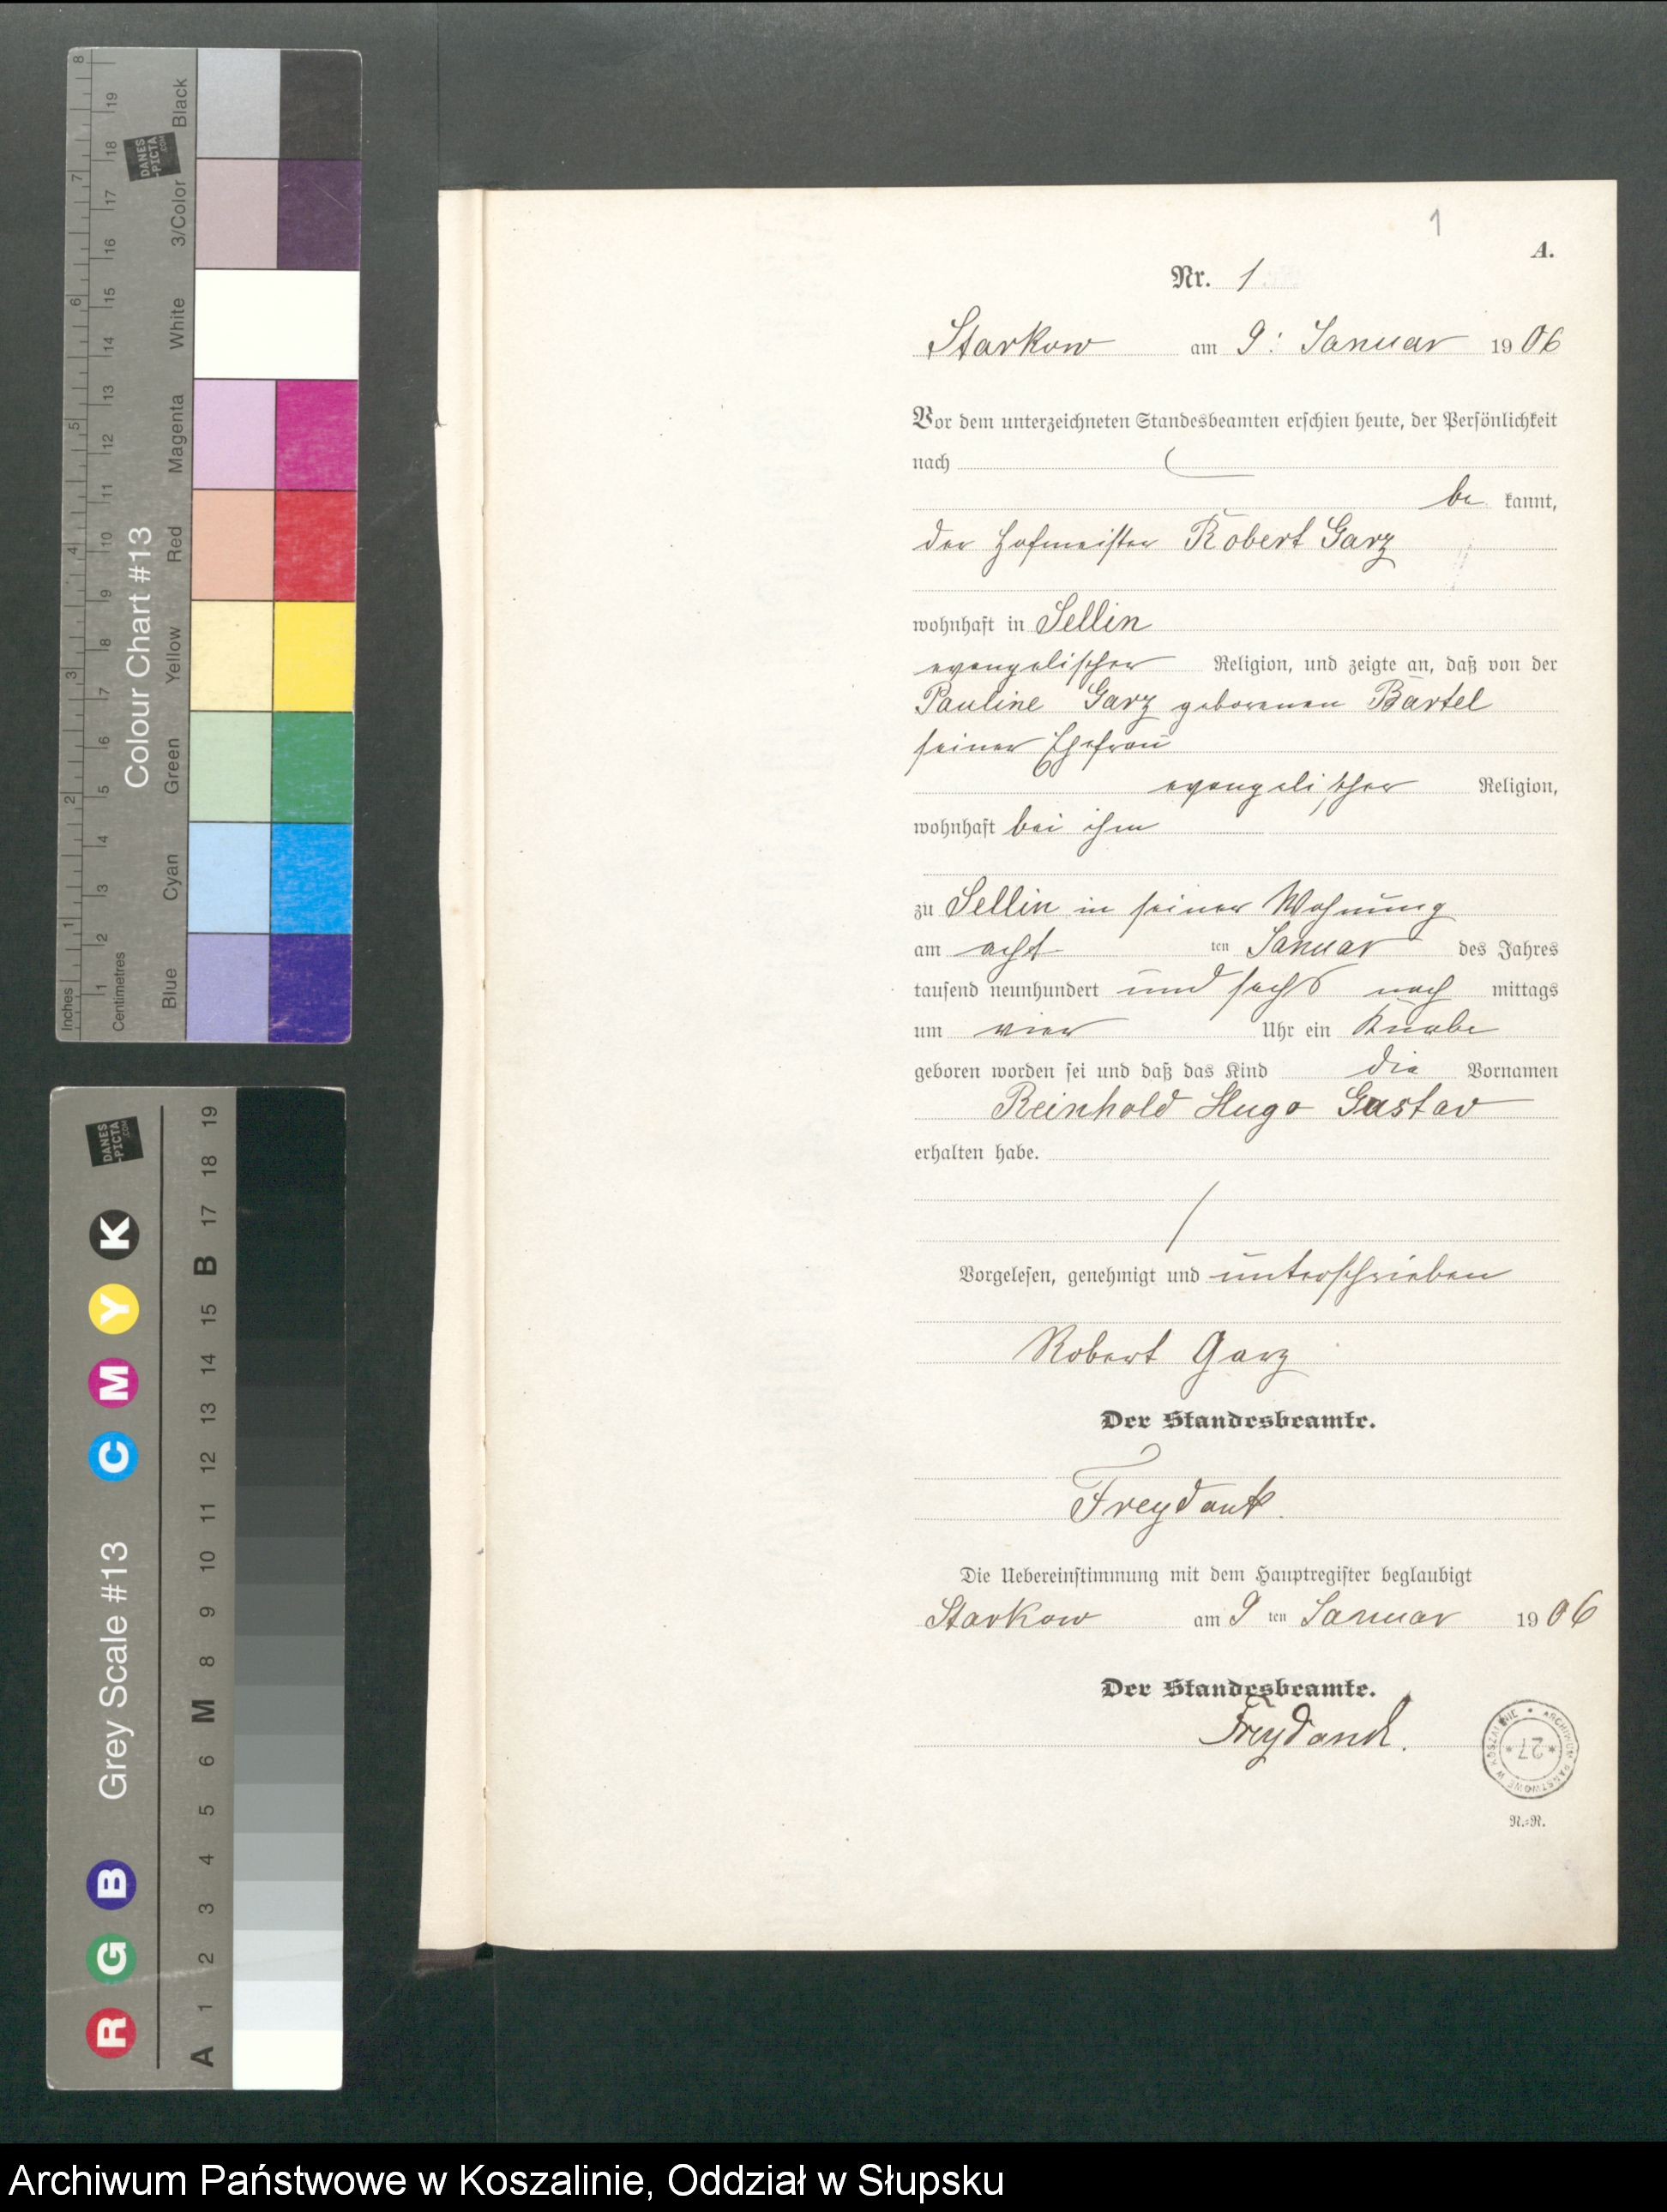 1
A.
Nr. 1
Starkow am 9: Januar 1906
Vor dem unterzeichneten Standesbeamten erschien heute, der Persönlichkeit
nach
be kannt,
der Hofmeister Robert Garz
wohnhaft in Sellin
evangelischer Religion, und zeigte an, daß von der
Pauline Garz geborenen Bartel
seiner Ehefrau
evangelischer Religion,
wohnhaft bei ihm
zu Sellin in seiner Wohnung
am acht ten Januar des Jahres
tausend neunhundert und sechs nach mittags
um vier Uhr ein Knabe
geboren worden sei und daß das Kind die Vornamen
Reinhold Hugo Gustav
erhalten habe.
Vorgelesen, genehmigt und unterschrieben
Robert Garz
Der Standesbeamte.
Freydank.
Die Uebereinstimmung mit dem Hauptregister beglaubigt
Starkow am 9 ten Januar 1906
Der Standesbeamte.
Freydank.
ARCHIWUM PAŃSTWOWE W KOSZALINIE
* 27 *
N.=N.
Colour Chart #13
Inches 1 2 3 4 5 6 7 8
Centimetres 1 2 3 4 5 6 7 8 9 10 11 12 13 14 15 16 17 18 19
Blue Cyan Green Yellow Red Magenta White 3/Color Black
DANES
-PICTA
.COM
Grey Scale #13
R G B C M Y K
A 1 2 3 4 5 6 M 8 9 10 11 12 13 14 15 B 17 18 19
DANES
-PICTA
.COM
Archiwum Państwowe w Koszalinie, Oddział w Słupsku